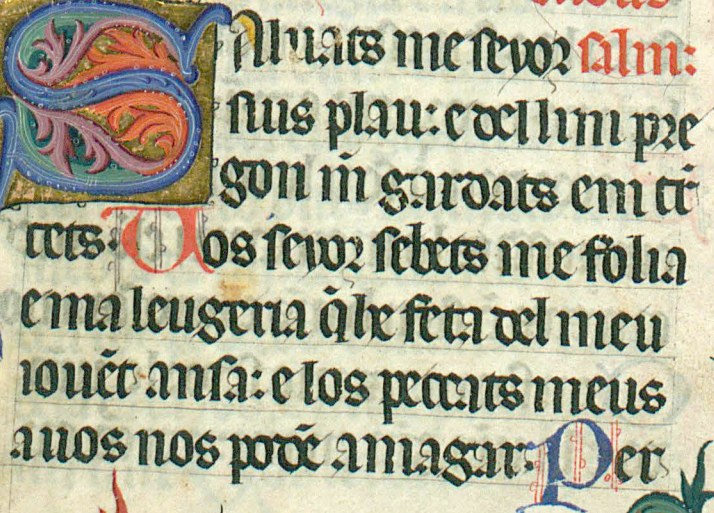 Saluats me seyor salm:
sius plau: e del lim pre
gon m̄ gardats em tr̄
tets: Uos seyor sebets me folia
e ma leugeria q̄ he feta del meu
iouēt ansa: e los peccats meus
a uos nos podē amagar. Per